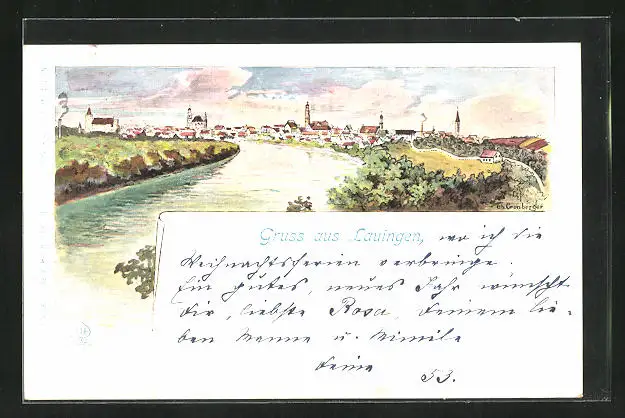 Ch. Cronberger
Gruss aus Lauingen, wo ich die
Weihnachtsferien verbringe.
Ein gutes, neues Jahr wünscht
Dir, liebste Rosa, Deinem lie-
ben Manne u.
Deine